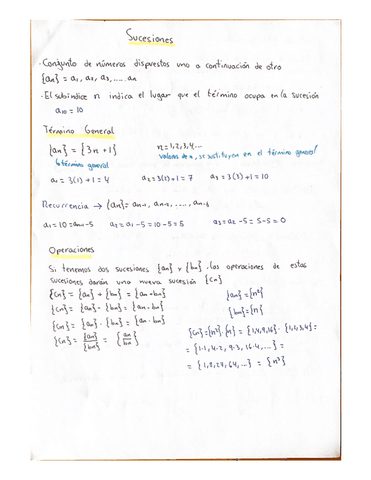 Sucesiones
· Conjunto de números dispuestos uno a continuación de otro
{an} = a1, a2, a3, .... an
· El subíndice n indica el lugar que el término ocupa en la sucesión
a10 = 10
Término General
{an} = {3n + 1}
n = 1, 2, 3, 4...
término general
valores de n, se sustituyen en el término general
a1 = 3(1) + 1 = 4 a2 = 3(2) + 1 = 7 a3 = 3(3) + 1 = 10
Recurrencia → {an} = an-1, an-2, ...., an-3
a1 = 10 = an-5 a2 = a1 - 5 = 10 - 5 = 5 a3 = a2 - 5 = 5 - 5 = 0
Operaciones
Si tenemos dos sucesiones {an} y {bn}, las operaciones de estas
sucesiones darán una nueva sucesión {Cn}
{Cn} = {an} + {bn} = {an + bn}
{Cn} = {an} - {bn} = {an - bn}
{Cn} = {an} · {bn} = {an · bn}
{Cn} = {an}/{bn} = {an/bn}
{an} = {n²}
{bn} = {n}
{Cn} = {n²} · {n} = {1, 4, 9, 16} · {1, 2, 3, 4} =
= {1·1, 4·2, 9·3, 16·4, ...} =
= {1, 8, 27, 64, ...} = {n³}